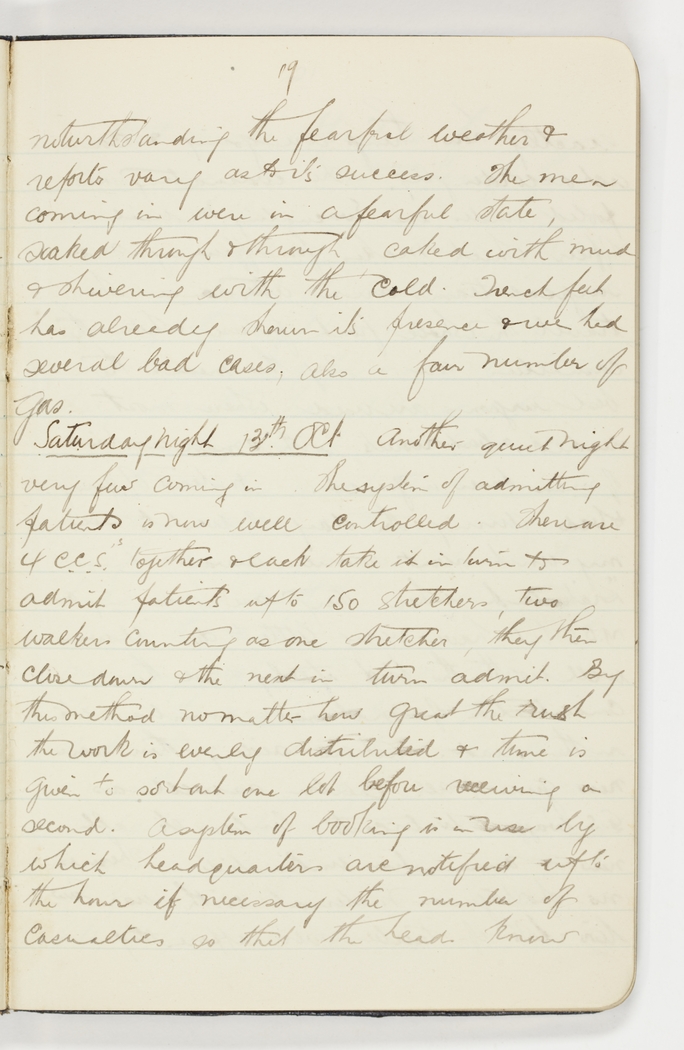 19
notwithstanding the fearful weather &
reports vary as to its success. The men
coming in were in a fearful state,
soaked through & through caked with mud
& shivering with the cold. Trench feet
has already shown its presence & we had
several bad cases, also a fair number of
Gas.
Saturday night 13th Oct Another quiet night
very few coming in The system of admitting
patients is now well controlled. There are
4 C.C.S.'s together & each take it in turn to
admit patients up to 150 stretchers, two
walkers counting as one stretcher, they then
close down & the next in turn admit. By
this method no matter how great the rush
the work is evenly distributed & time is
given to sort out one lot before receiving a
second. A system of booking is in use by
which headquarters are notified up to
the hour if necessary the number of
Casualties so that the heads know